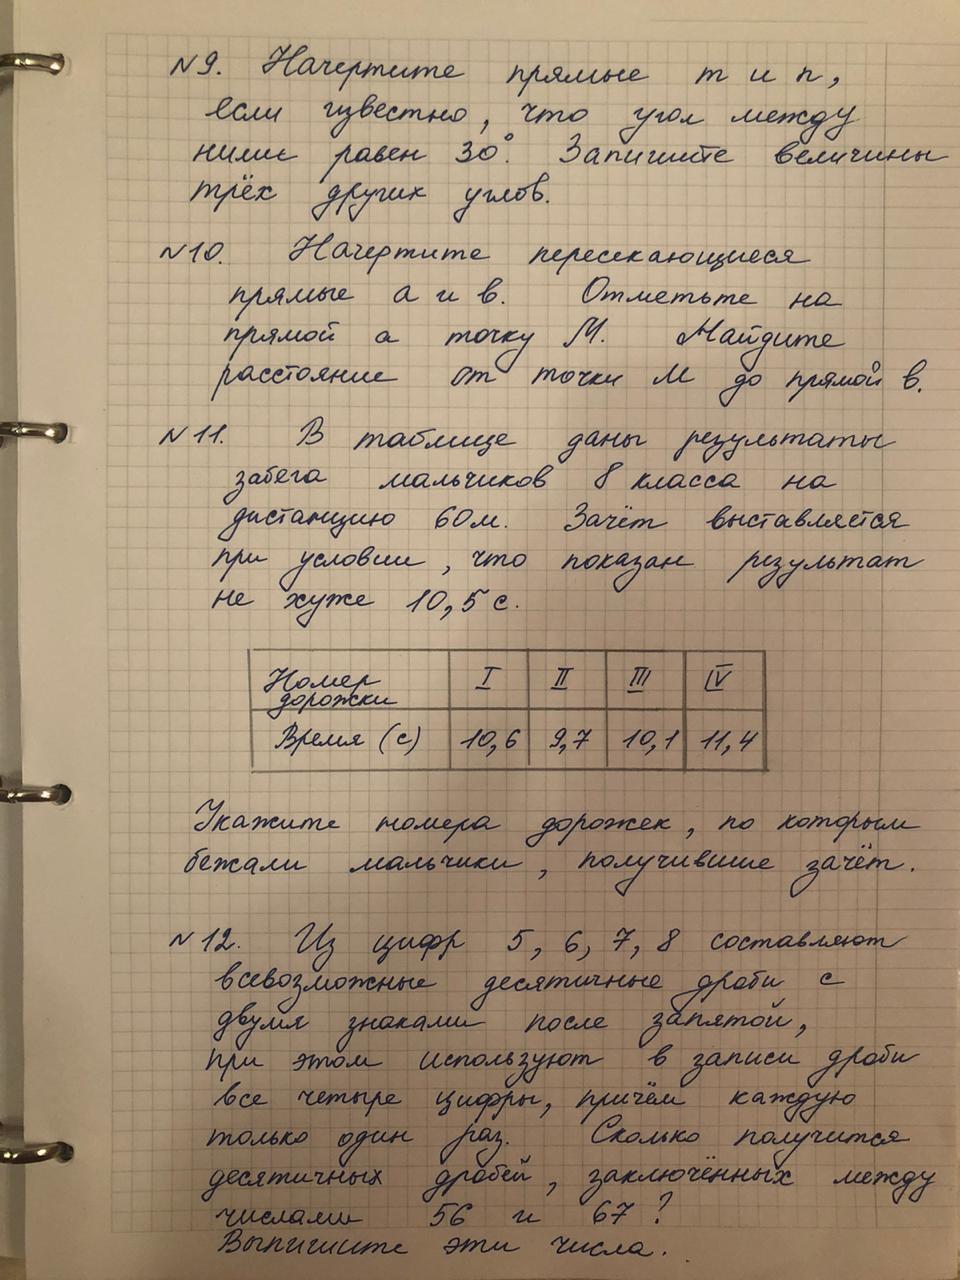 №9. Начертите прямые m и n,
если известно, что угол между
ними равен 30°. Запишите величины
трёх других углов.
№10. Начертите пересекающиеся
прямые а и в. Отметьте на
прямой а точку М. Найдите
расстояние от точки М до прямой в.
№11. В таблице даны результаты
забега мальчиков 8 класса на
дистанцию 60м. Зачёт выставляется
при условии, что показан результат
не хуже 10,5 с.
Номер дорожки I II III IV
Время (с) 10,6 9,7 10,1 11,4
Укажите номера дорожек, по которым
бежали мальчики, получившие зачёт.
№12. Из цифр 5, 6, 7, 8 составляют
всевозможные десятичные дроби с
двумя знаками после запятой,
при этом используют в записи дроби
все четыре цифры, причём каждую
только один раз. Сколько получится
десятичных дробей, заключённых между
числами 56 и 67?
Выпишите эти числа.